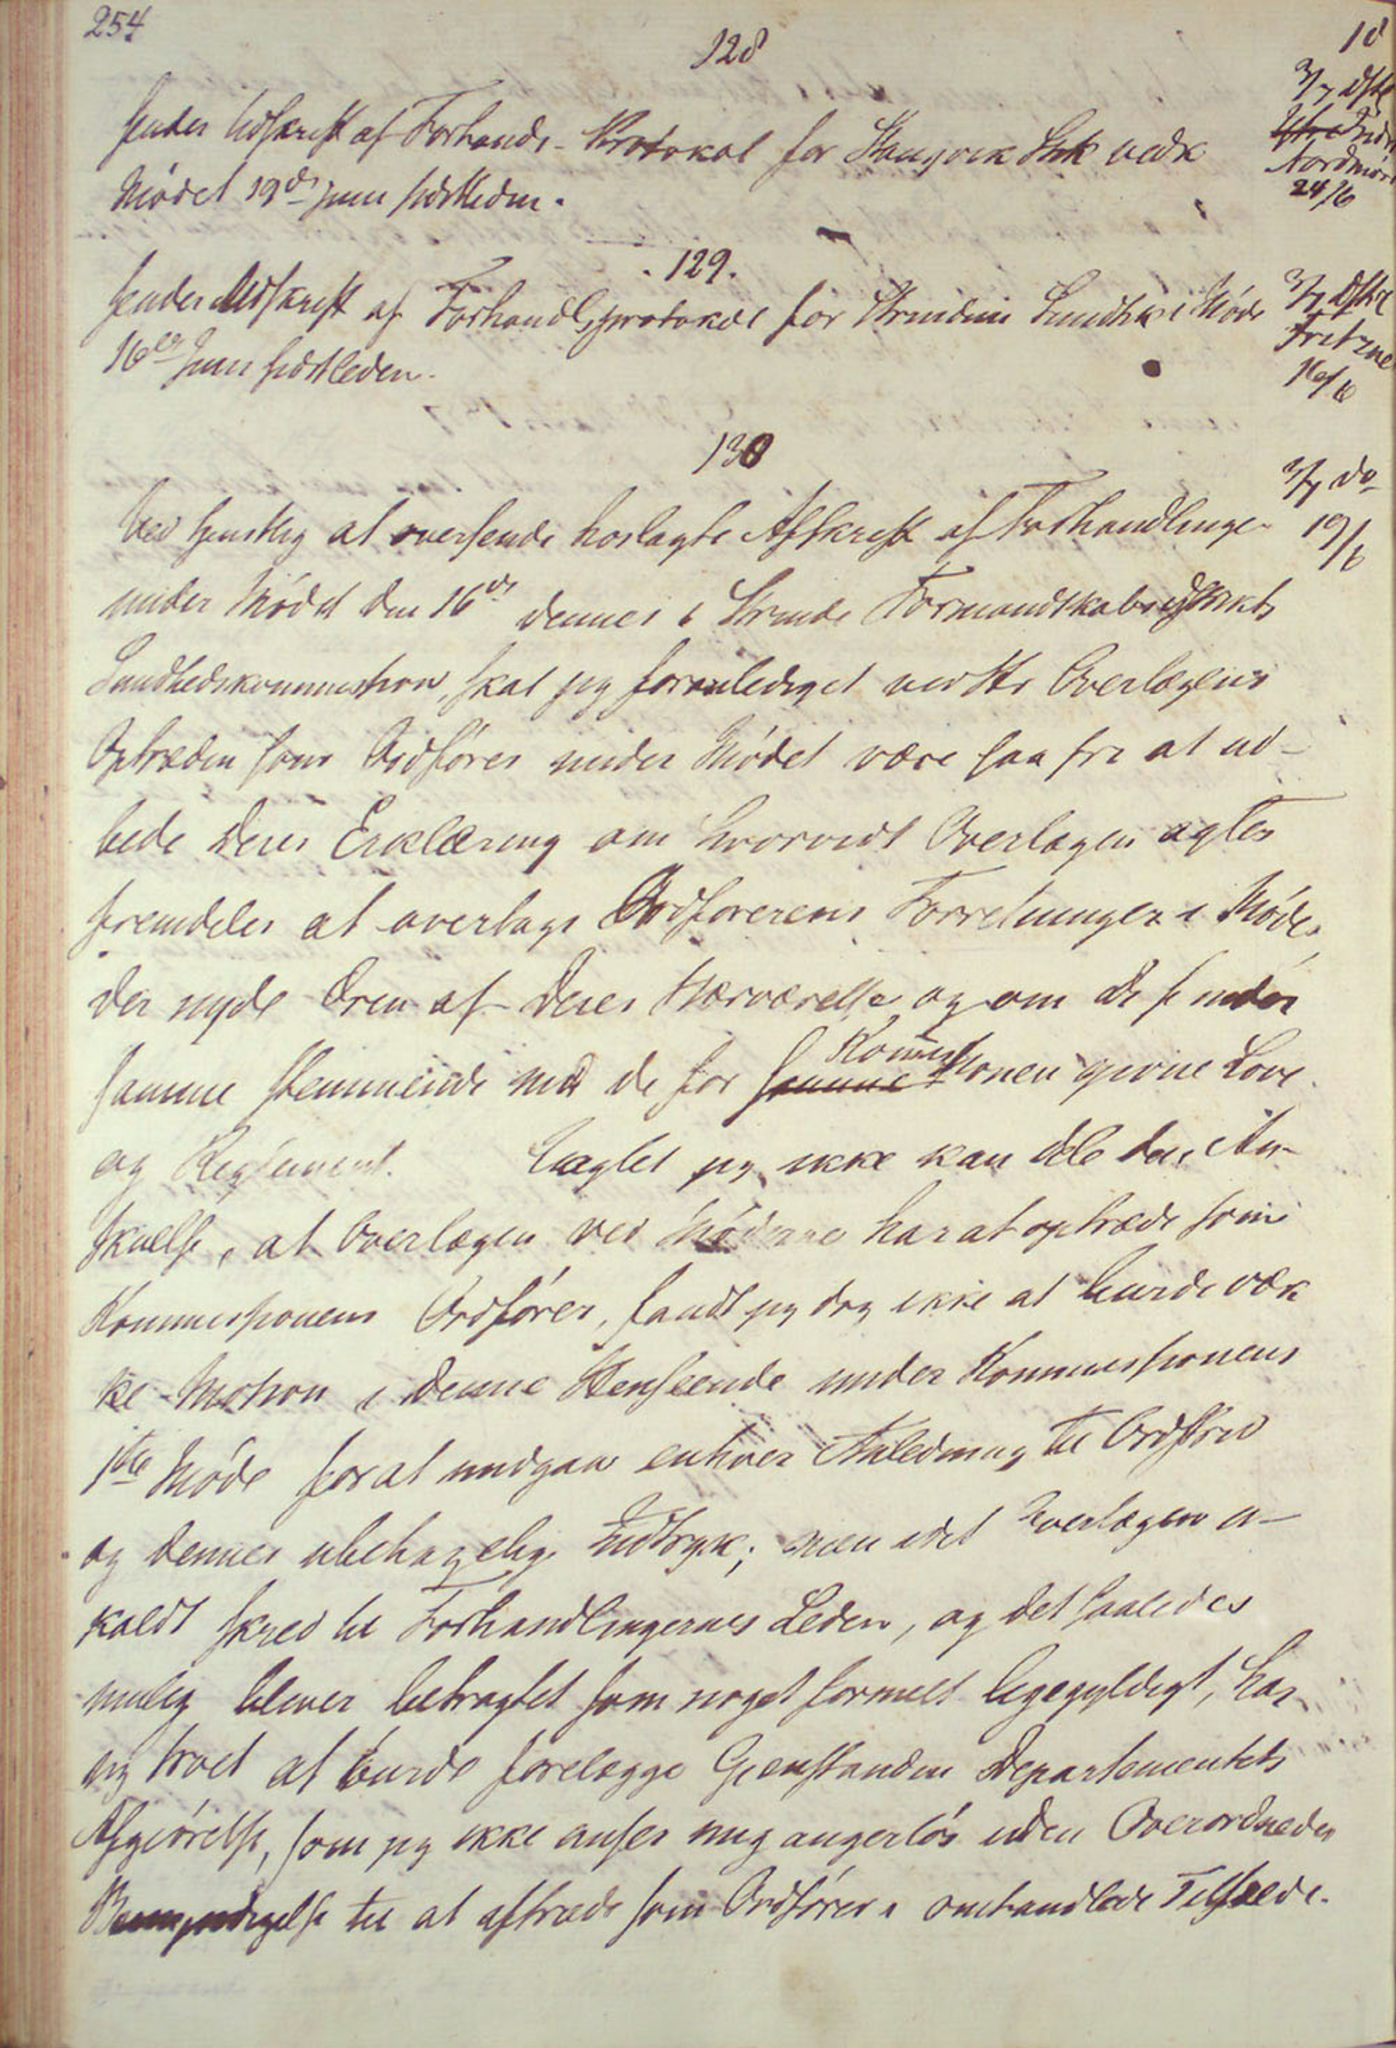 254
128
Sender Udskrift af Forhands-Protokol for Stangvik Shk vedk
Mødet 19de Juni sidstleden.
18
3/7 Dste
Nordmøre
24/6
129.
Sender Udskrift af Forhandlsprotokol for Strinden Sundhk i Møde
16de Juni sidstleden.
3/7 Dste
Fritzne
16/6
130
3/7 do
19/6
Ved tjenstlig at oversende hoslagte Afskrift af Forhandlinger
under Mødet den 16de dennes i Strinde Formandskabsdistrikts
Sundhedskommission, skal jeg foranlediget ved Hr Overlægens
Optræden som Ordfører under Mødet være saa fri at ud-
bede Deres Erklæring om hvorvidt Overlægen agter
fremdeles at overtage Ordførerens Forretninger i Møder
der nyde Æren af Deres Nærværelse, og om De finder
samme stemmende med de for samme Kommissionen givne Love
og Reglement. Uagtet jeg ikke kan dele den An-
skuelse, at Overlægen ved Møderne har at optræde som
Kommissionens Ordfører, fandt jeg dog ikke at burde væk
ke Motion i denne Henseende under Kommissionens
1ste Møde for at undgaa enhver Anledning til Ordstrid
og dennes ubehagelige Indtryk; men idet Overlægen u-
kaldt skred til Forhandlingernes Leden, og det saaledes
mulig bliver betragtet som noget formelt ligegyldigt, har
jeg troet at burde forelægge Gjenstanden Departementets
Afgjørelse, som jeg ikke anser mig angerløs uden Overordnedes
Bemyndigelse til at aftræde som Ordfører i omhandlede Tilfælde.